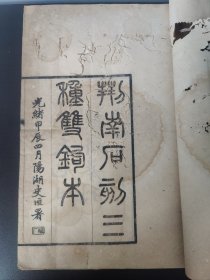 荆南石刻三
種雙鉤本
光緒甲辰四月陽湖史署